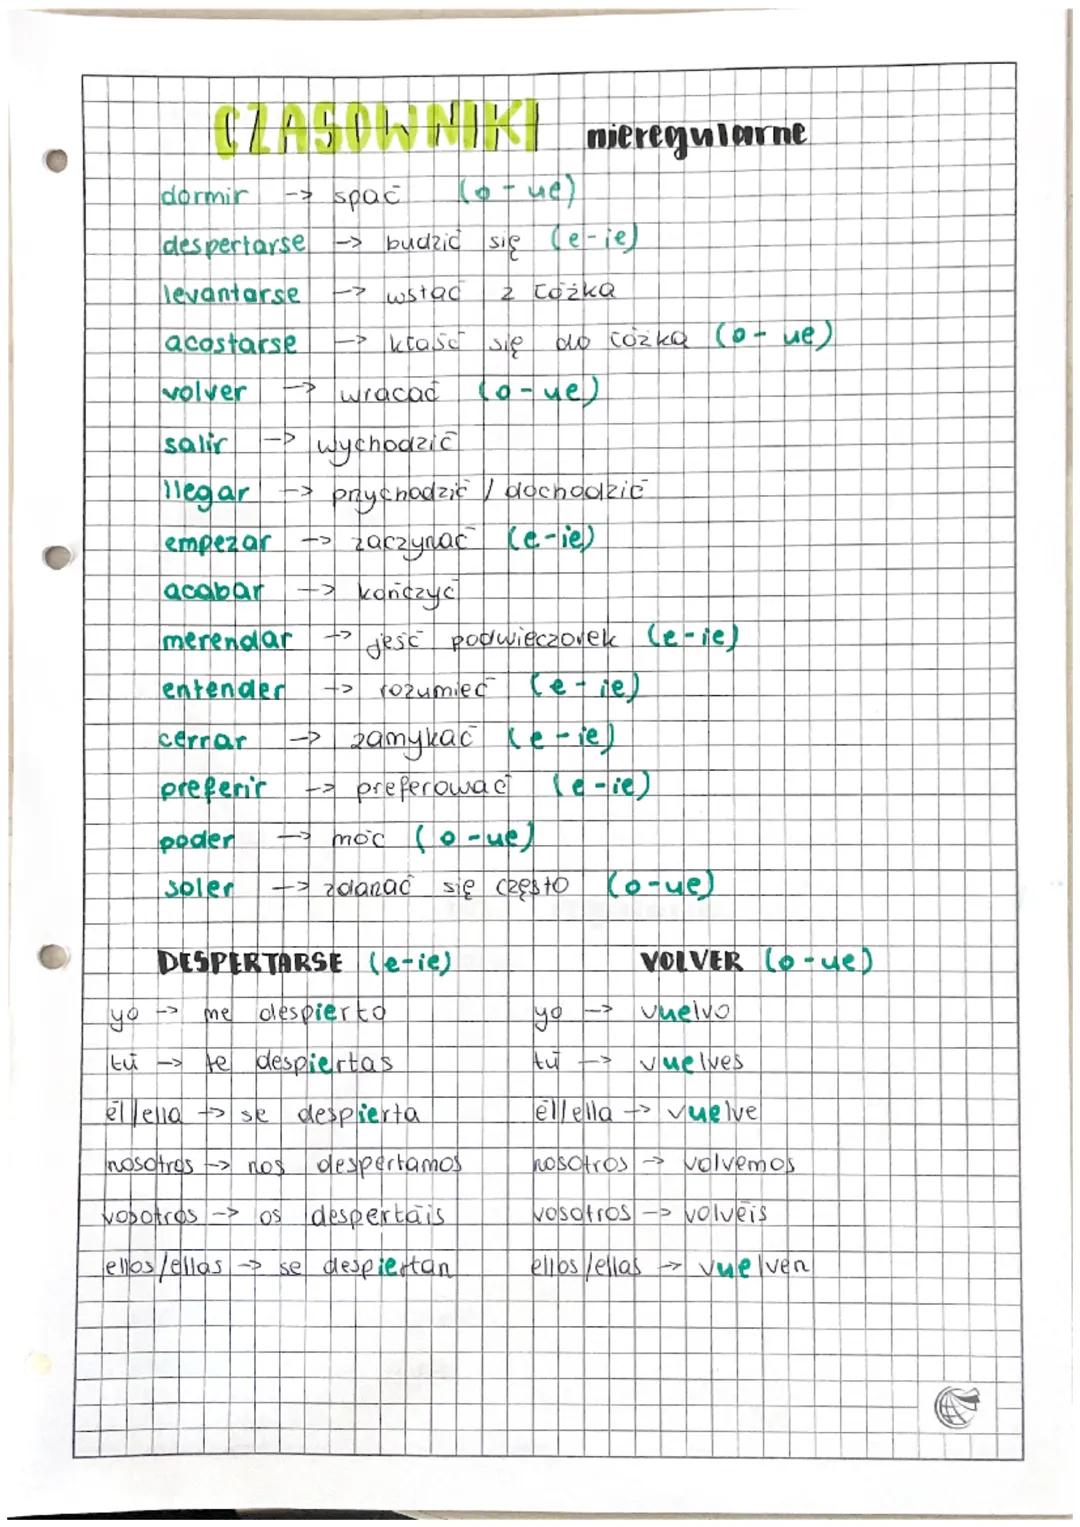 CZASOWNIKI nieregularne
dormir -> spać (o-ue)
despertarse -> budzić się (e-ie)
levantarse -> wstać z łóżka
acostarse -> kłaść się do łóżka (o-ue)
volver -> wracać (o-ue)
salir -> wychodzić
llegar -> przychodzić / dochodzić
empezar -> zaczynać (e-ie)
acabar -> kończyć
merendar -> jeść podwieczorek (e-ie)
entender -> rozumieć (e-ie)
cerrar -> zamykać (e-ie)
preferir -> preferować (e-ie)
poder -> móc (o-ue)
soler -> zdarzać się często (o-ue)
DESPERTARSE (e-ie)
yo -> me despierto
tú -> te despiertas
él/ella -> se despierta
nosotros -> nos despertamos
vosotros -> os despertáis
ellos/ellas -> se despiertan
VOLVER (o-ue)
yo -> vuelvo
tú -> vuelves
él/ella -> vuelve
nosotros -> volvemos
vosotros -> volvéis
ellos/ellas -> vuelven